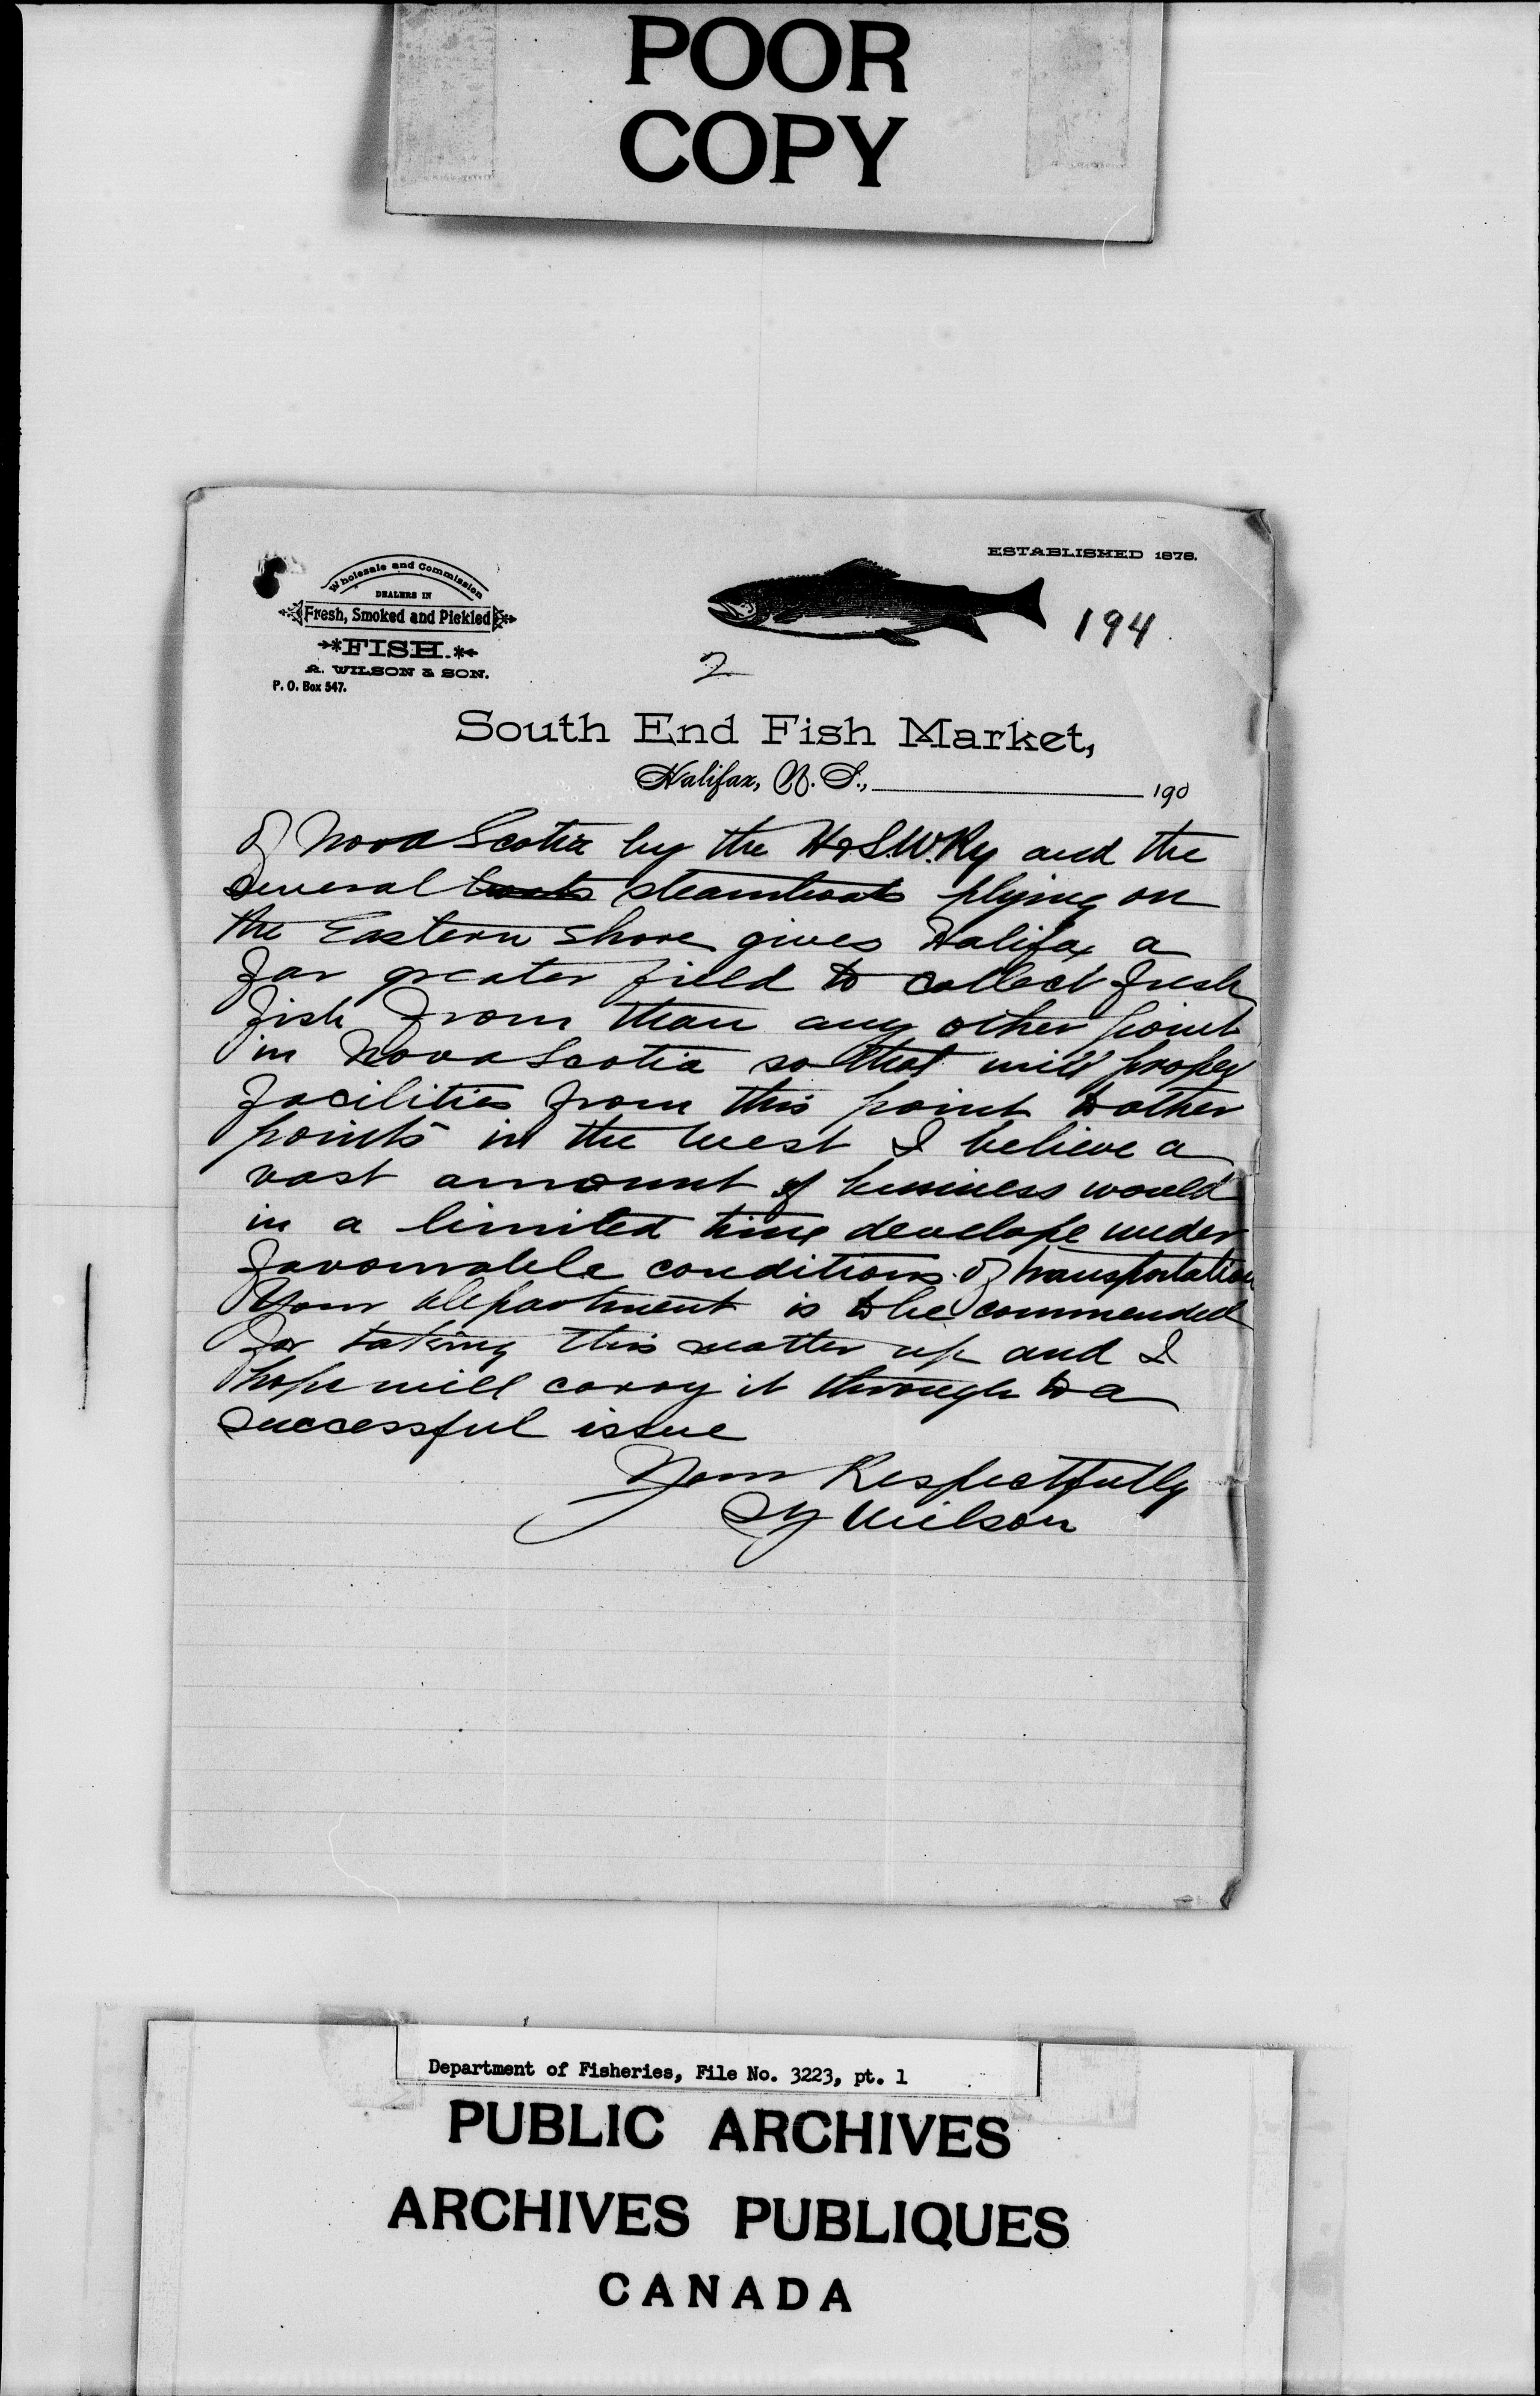 POOR
COPY
ESTABLISHED 1878.
Wholesale and Commission
DEALERS IN
Fresh, Smoked and Pickled
FISH.
A. WILSON & SON.
P. O. Box 547.
194
2
South End Fish Market,
Halifax, N. S., 190
of Nova Scotia by the H&S.W.Ry and the
several boats steamboats plying on
the Eastern Shore gives Halifax a
far greater field to collect fresh
fish from than any other point
in Nova Scotia so that with proper
facilities from this point to other
points in the west I believe a
vast amount of business would
in a limited time develope under
favourable conditions of transportation
Your department is to be commended
for taking this matter up and I
hope will carry it through to a
successful issue
Yours Respectfully
Wilson
Department of Fisheries, File No. 3223, pt. 1
PUBLIC ARCHIVES
ARCHIVES PUBLIQUES
CANADA